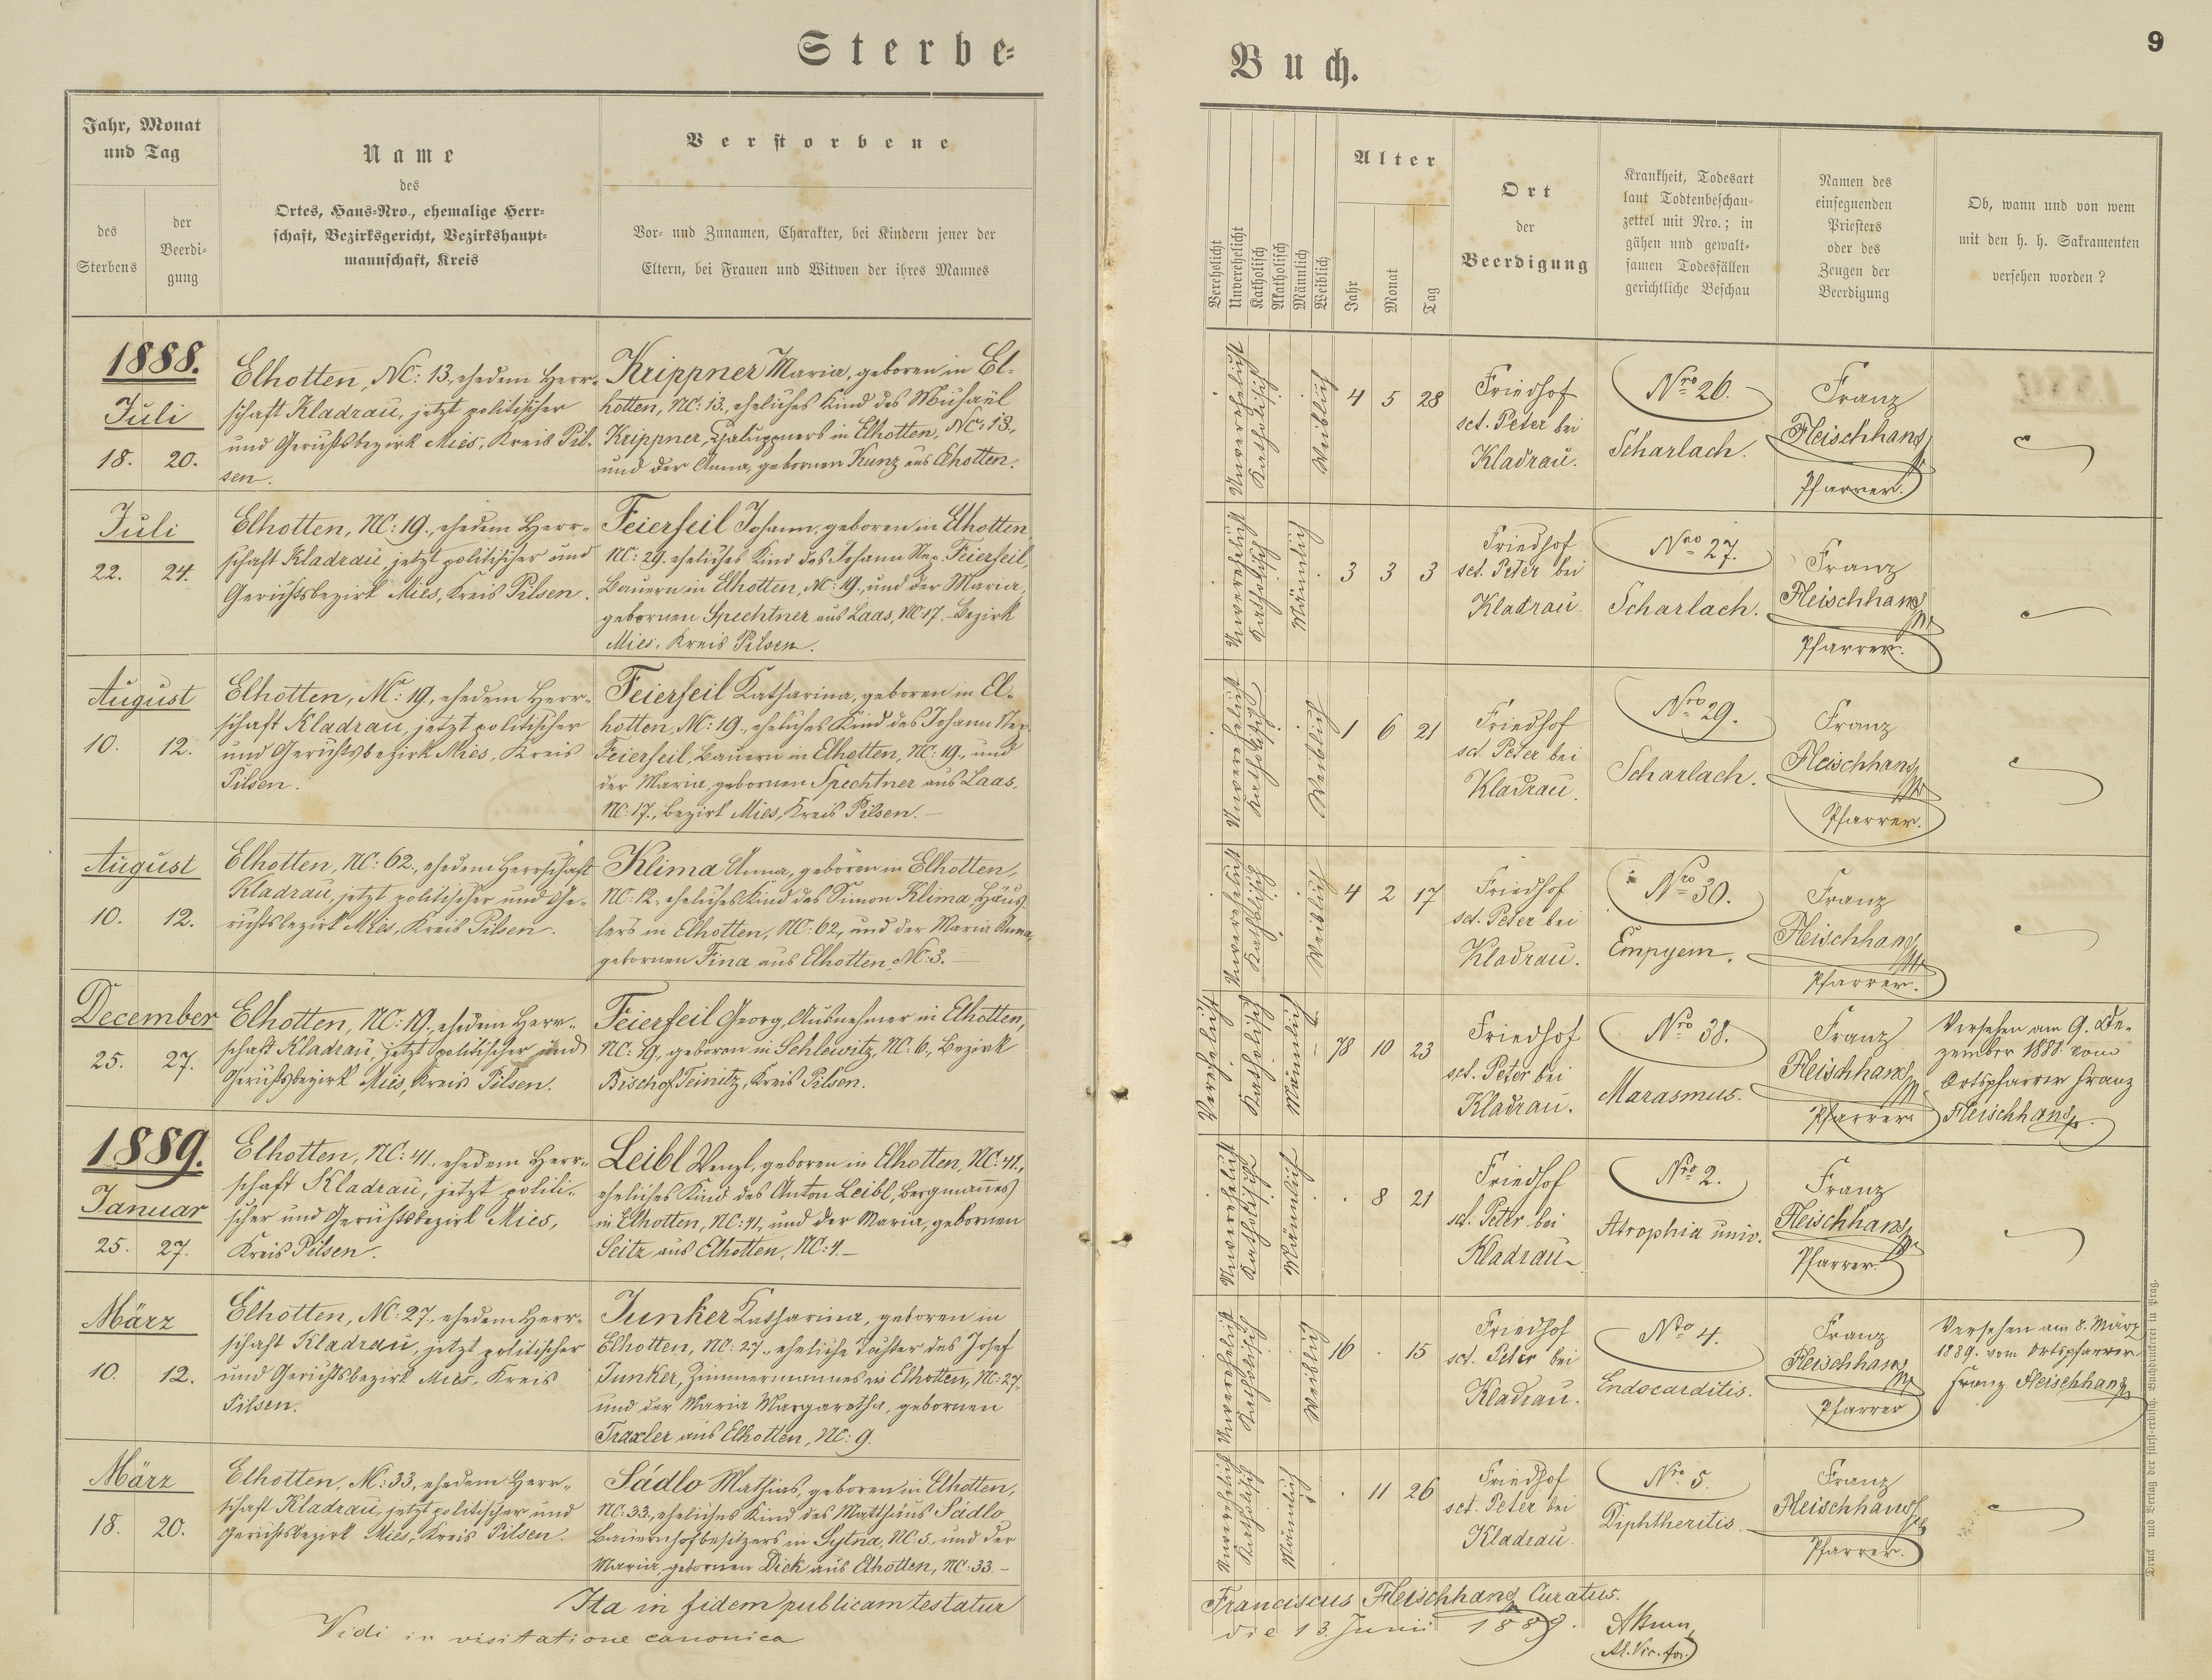 Sterbe-
Buch.
9
Jahr, Monat
und Tag
des
Sterbens
der
Beerdi-
gung
Name
des
Ortes, Haus-Nro., ehemalige Herr-
schaft, Bezirksgericht, Bezirkshaupt-
mannschaft, Kreis
Verstorbene
Vor- und Zunamen, Charakter, bei Kindern jener der
Eltern, bei Frauen und Witwen der ihres Mannes
Verehelicht
Unverehelicht
Katholisch
Akatholisch
Männlich
Weiblich
Alter
Jahr
Monat
Tag
Ort
der
Beerdigung
Krankheit, Todesart
laut Todtenbeschau-
zettel mit Nro.; in
gähen und gewalt-
samen Todesfällen
gerichtliche Beschau
Namen des
einsegnenden
Priesters
oder des
Zeugen der
Beerdigung
Ob, wann und von wem
mit den h. h. Sakramenten
versehen worden?
1888.
Juli
18. 20.
Elhotten, NC: 13, ehedem Herr-
schaft Kladrau, jetzt politischer
und Gerichtsbezirk Mies, Kreis Pil-
sen.
Krippner Maria, geboren in El-
hotten, NC: 13., eheliches Kind des Michaël
Krippner, Chaluppners in Elhotten, NC: 13.,
und der Anna, gebornen Kunz aus Elhotten.
Unverehelicht
Katholisch
Weiblich
4 5 28
Friedhof
sct. Peter bei
Kladrau.
Nro 26.
Scharlach.
Franz
Fleischhans
Pfarrer.
Juli
22. 24.
Elhotten, NC: 19., ehedem Herr-
schaft Kladrau, jetzt politischer und
Gerichtsbezirk Mies, Kreis Pilsen.
Feierfeil Johann, geboren in Elhotten
NC: 29. eheliches Kind des Johann Nep. Feierfeil,
Bauern in Elhotten, NC: 19., und der Maria,
gebornen Spechtner aus Laas, NC 17. Bezirk
Mies. Kreis Pilsen.
Unverehelicht
Katholisch
Männlich
3 3 3
Friedhof
sct. Peter bei
Kladrau.
Nro 27.
Scharlach.
Franz
Fleischhans
Pfarrer.
August
10. 12.
Elhotten, NC: 19, ehedem Herr-
schaft Kladrau, jetzt politischer
und Gerichtsbezirk Mies, Kreis
Pilsen.
Feierfeil Katharina, geboren in El-
hotten, NC: 19., eheliches Kind des Johann Nep.
Feierfeil, Bauern in Elhotten, NC: 19., und
der Maria, gebornen Spechtner aus Laas,
NC: 17., Bezirk Mies, Kreis Pilsen. —
Unverehelicht
Katholisch
Weiblich
1 6 21
Friedhof
sct. Peter bei
Kladrau.
Nro 29.
Scharlach.
Franz
Fleischhans
Pfarrer.
August
10. 12.
Elhotten, NC: 62., ehedem Herrschaft
Kladrau, jetzt politischer und Ge-
richtsbezirk Mies, Kreis Pilsen.
Klima Anna, geboren in Elhotten,
NC: 12., eheliches Kind des Simon Klima Häus-
lers in Elhotten, NC: 62, und der Maria Anna,
gebornen Fina aus Elhotten, NC: 3. —
Unverehelicht
Katholisch
Weiblich
4 2 17
Friedhof
sct. Peter bei
Kladrau.
Nro 30.
Empyem.
Franz
Fleischhans
Pfarrer.
December
25. 27.
Elhotten, NC: 19., ehedem Herr-
schaft Kladrau, jetzt politischer und
Gerichtsbezirk Mies, Kreis Pilsen.
Feierfeil Georg, Ausnehmer in Elhotten,
NC: 19, geboren in Schlewitz, NC: 6., Bezirk
Bischof Teinitz, Kreis Pilsen.
Verehelicht
Katholisch
Männlich
78 10 23
Friedhof
sct. Peter bei
Kladrau.
Nro 38.
Marasmus.
Franz
Fleischhans
Pfarrer.
Versehen am 9. De-
zember 1888 vom
Ortspfarrer Franz
Fleischhans.
1889.
Januar
25. 27.
Elhotten, NC: 41., ehedem Herr-
schaft Kladrau, jetzt politi-
scher und Gerichtsbezirk Mies,
Kreis Pilsen.
Leibl Wenzl, geboren in Elhotten, NC: 41.,
eheliches Kind des Anton Leibl, Bergmannes
in Elhotten, NC: 41, und der Maria, gebornen
Seitz aus Elhotten, NC: 4. —
Unverehelicht
Katholisch
Männlich
. 8 21
Friedhof
sct. Peter bei
Kladrau
Nro 2.
Atrophia univ.
Franz
Fleischhans
Pfarrer.
März
10. 12.
Elhotten, NC: 27., ehedem Herr-
schaft Kladrau, jetzt politischer
und Gerichtsbezirk Mies, Kreis
Pilsen.
Junker Katharina, geboren in
Elhotten, NC: 27., eheliche Tochter des Josef
Junker, Zimmermannes in Elhotten, NC: 27.
und der Maria Margaretha, gebornen
Traxler aus Elhotten, NC: 9.
Unverehelicht
Katholisch
Weiblich
16 . 15
Friedhof
sct. Peter bei
Kladrau.
Nro 4.
Endocarditis.
Franz
Fleischhans
Pfarrer
Versehen am 8. März
1889. vom Ortspfarrer
Franz Fleischhans
März
18. 20.
Elhotten, NC: 33, ehedem Herr-
schaft Kladrau, jetzt politischer und
Gerichtsbezirk Mies, Kreis Pilsen.
Sádlo Mathias, geboren in Elhotten,
NC: 33., eheliches Kind des Matthäus Sádlo
Bauernhofbesitzers in Sytna, NC: 5., und der
Maria, gebornen Dick aus Elhotten, NC: 33. —
Unverehelicht
Katholisch
Männlich
. 11 26
Friedhof
sct. Peter bei
Kladrau.
Nro 5.
Diphtheritis.
Franz
Fleischhans
Pfarrer.
Ita in fidem publicam testatur
Franciscus Fleischhans Curatus.
Vidi in visitatione canonica
die 13. Junii 1889.
Druck und Verlag der fürst-erzbisch. Buchdruckerei in Prag.